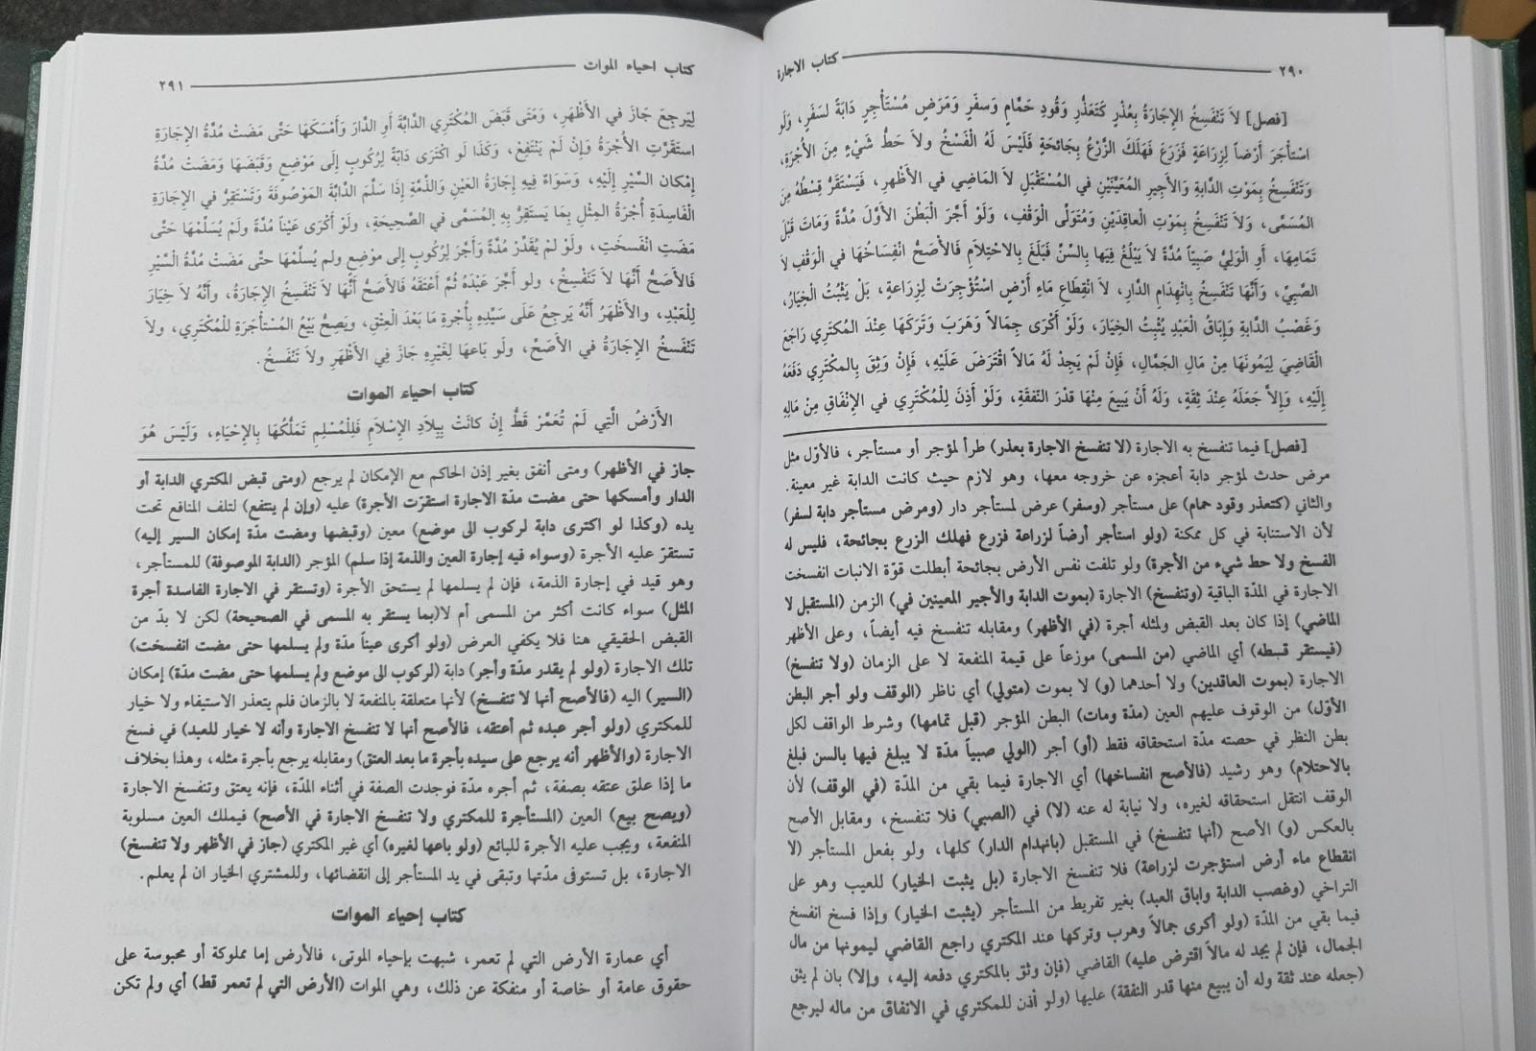 ٢٩٠ كتاب الاجارة
[فصل] لاَ تَنْفَسِخُ الإِجَارَةُ بِعُذْرٍ كَتَعَذُّرِ وَقُودِ حَمَّامٍ وَسَفَرٍ وَمَرَضِ مُسْتَأْجِرِ دَابَةً لسَفَرٍ، وَلَو
اسْتَأْجَرَ أَرْضاً لِزِرَاعَةٍ فَزَرَعَ فَهَلَكَ الزَّرْعُ بِجَائِحَةٍ فَلَيْسَ لَهُ الْفَسْخُ ولاَ حَطُّ شَيْءٍ مِنَ الأُجْرَةِ،
وَتَنْفَسِخُ بِمَوتِ الدَّابةِ وَالأَجِيرِ المُعَيَّنَيْنِ في المُسْتَقْبَلِ لاَ المَاضِي في الأَظْهَرِ، فَيَسْتَقَرُّ قِسْطُهُ مِنَ
المُسَمَّى، وَلاَ تَنْفَسِخُ بِمَوتِ الْعاقِدَيْنِ وَمُتَوَلَّى الْوَقْفِ، وَلَوْ أَجَّرَ الْبَطْنَ الأَوَّلَ مُدَّةً وَمَاتَ قَبْلَ
تَمَامِهَا، أَوِ الْوَلِيُّ صَبِيّاً مُدَّةً لاَ يَبْلُغُ فِيهَا بِالسِّنِّ فَبَلَغَ بِالاحْتِلاَمِ فَالأَصَحُّ انْفِسَاخُهَا في الْوَقْفِ لاَ
الصَّبِيِّ، وَأَنَّهَا تَنْفَسِخُ بِانْهِدَامِ الدَّارِ، لاَ انْقِطَاعِ مَاءِ أَرْضٍ اسْتُؤْجِرَتْ لِزِرَاعةٍ، بَلْ يَثْبُتُ الْخِيَارُ،
وَغَصْبُ الدَّابةِ وَإِبَاقُ الْعَبْدِ يُثْبِتُ الخِيَارَ، وَلَوْ أَكْرَى جِمَالاً وَهَرَبَ وَتَرَكَهَا عِنْدَ المُكتَرِي رَاجَعَ
الْقَاضِيَ لِيَمُونَهَا مِنْ مَالِ الجَمَّالِ، فَإِنْ لَمْ يَجِدْ لَهُ مَالاً اقْتَرَضَ عَلَيْهِ، فَإِنْ وَثِقَ بِالمكْتَرِي دَفَعَهُ
إِلَيْهِ، وَإِلاَّ جَعَلَهُ عِنْدَ ثِقَةٍ، وَلَهُ أَنْ يَبِيعَ مِنْهَا قَدْرَ النَّفَقَةِ، وَلَوْ أَذِنَ لِلْمُكْتَرِي في الإِنْفَاقِ مِنْ مَالِهِ
[فصل] فيما تنفسخ به الاجارة (لا تنفسخ الاجارة بعذر) طرأ لمؤجر أو مستأجر، فالأوّل مثل
مرض حدث لمؤجر دابة أعجزه عن خروجه معها، وهو لازم حيث كانت الدابة غير معينة.
والثاني (كتعذر وقود حمام) على مستأجر (وسفر) عرض لمستأجر دار (ومرض مستأجر دابة لسفر)
لأن الاستنابة في كل ممكنة (ولو استأجر أرضاً لزراعة فزرع فهلك الزرع بجائحة، فليس له
الفسخ ولا حط شيء من الأجرة) ولو تلفت نفس الأرض بجائحة أبطلت قوّة الانبات انفسخت
الاجارة في المدّة الباقية (وتنفسخ) الاجارة (بموت الدابة والأجير المعينين في) الزمن (المستقبل لا
الماضي) إذا كان بعد القبض ولمثله أجرة (في الأظهر) ومقابله تنفسخ فيه أيضاً، وعلى الأظهر
(فيستقر قسطه) أي الماضي (من المسمى) موزعاً على قيمة المنفعة لا على الزمان (ولا تنفسخ)
الاجارة (بموت العاقدين) ولا أحدهما (و) لا بموت (متولي) أي ناظر (الوقف ولو أجر البطن
الأوّل) من الوقوف عليهم العين (مدّة ومات) البطن المؤجر (قبل تمامها) وشرط الواقف لكل
بطن النظر في حصته مدّة استحقاقه فقط (أو) أجر (الولي صبياً مدّة لا يبلغ فيها بالسن فبلغ
بالاحتلام) وهو رشيد (فالأصح انفساخها) أي الاجارة فيما بقي من المدّة (في الوقف) لأن
الوقف انتقل استحقاقه لغيره، ولا نيابة له عنه (لا) في (الصبي) فلا تنفسخ، ومقابل الأصح
بالعكس (و) الأصح (أنها تنفسخ) في المستقبل (بانهدام الدار) كلها، ولو بفعل المستأجر (لا
انقطاع ماء أرض استؤجرت لزراعة) فلا تنفسخ الاجارة (بل يثبت الخيار) للعيب وهو على
التراخي (وغصب الدابة واباق العبد) بغير تفريط من المستأجر (يثبت الخيار) وإذا فسخ انفسخ
فيما بقي من المدّة (ولو أكرى جمالاً وهرب وتركها عند المكتري راجع القاضي ليمونها من مال
الجمال، فإن لم يجد له مالاً اقترض عليه) القاضي (فإن وثق بالمكتري دفعه إليه، وإلا) بان لم يثق
(جعله عند ثقة وله أن يبيع منها قدر النفقة) عليها (ولو أذن للمكتري في الانفاق من ماله ليرجع
كتاب احياء الموات ٢٩١
لِيَرجِعَ جَازَ في الأَظْهَرِ، وَمَتَى قَبَضَ المُكْتَرِي الدَّابَّةَ أَوِ الدَّارَ وَأَمْسَكَهَا حَتَّى مَضَتْ مُدَّةُ الإِجَارَةِ
استَقَرَّتِ الأُجْرَةُ وَإِنْ لَمْ يَنْتَفِعْ، وَكَذَا لَو اكْتَرَى دَابَّةً لِرُكُوبٍ إِلَى مَوْضِعٍ وَقَبَضَهَا وَمَضَتْ مُدَّةُ
إِمْكَانِ السَّيْرِ إِلَيْهِ، وَسَوَاءٌ فِيهِ إِجَارَةُ العَيْنِ وَالذِّمَّةِ إِذَا سَلَّمَ الدَّابَّةَ المَوْصُوفَةَ وَتَسْتَقِرُّ في الإِجَارَةِ
الْفَاسِدَةِ أُجْرَةُ المِثْلِ بِمَا يَستَقِرُّ بِهِ المُسَمَّى في الصَّحِيحَةِ، ولَوْ أَكْرَى عَيْناً مُدَّةً ولَمْ يُسَلِّمْهَا حَتَّى
مَضَتِ انْفَسَخَتْ، وَلَوْ لَمْ يُقَدِّرْ مُدَّةً وَأَجَّرَ لِرُكُوبٍ إِلى مَوْضِعٍ ولم يُسلِّمْهَا حتَّى مَضَتْ مُدَّةُ السَّيْرِ
فَالأَصَحُّ أَنَّهَا لاَ تَنْفَسِخُ، ولو أَجَّرَ عَبْدَهُ ثُمَّ أَعْتَقَهُ فَالأَصَحُّ أَنَّهَا لاَ تَنْفَسِخُ الإِجَارَةُ، وأَنَّهُ لاَ خِيَارَ
لِلْعَبْدِ، والأَظْهَرُ أَنَّهُ يَرجِعُ عَلَى سَيِّدِهِ بِأُجْرةِ مَا بَعْدَ العِتْقِ، ويَصِحُّ بَيْعُ المُسْتَأْجَرَةِ للْمُكْتَرِي، ولاَ
تَنْفَسخُ الإِجَارَةُ في الأَصَحِّ، ولَو بَاعهَا لِغَيْرِهِ جَازَ فِي الأَظْهَرِ ولاَ تَنْفَسخُ.
كتاب احياء الموات
الأَرْضُ الَّتِي لَمْ تُعَمَّرْ قَطُّ إِنْ كانَتْ بِبِلاَدِ الإِسْلاَمِ فَلِلْمُسْلِمِ تَمَلُّكُهَا بِالإِحْيَاءِ، وَلَيْسَ هُوَ
جاز في الأظهر) ومتى أنفق بغير إذن الحاكم مع الإمكان لم يرجع (ومتى قبض المكتري الدابة أو
الدار وأمسكها حتى مضت مدّة الاجارة استقرّت الأجرة) عليه (وإن لم ينتفع) لتلف المنافع تحت
يده (وكذا لو اكترى دابة لركوب الى موضع) معين (وقبضها ومضت مدّة إمكان السير إليه)
تستقرّ عليه الأجرة (وسواء فيه إجارة العين والذمة إذا سلم) المؤجر (الدابة الموصوفة) للمستأجر،
وهو قيد في إجارة الذمة، فإن لم يسلمها لم يستحق الأجرة (وتستقر في الاجارة الفاسدة أجرة
المثل) سواء كانت أكثر من المسمى أم لا(بما يستقر به المسمى في الصحيحة) لكن لا بدّ من
القبض الحقيقي هنا فلا يكفي العرض (ولو أكرى عيناً مدّة ولم يسلمها حتى مضت انفسخت)
تلك الاجارة (ولو لم يقدر مدّة وأجر) دابة (لركوب الى موضع ولم يسلمها حتى مضت مدّة) إمكان
(السير) اليه (فالأصح أنها لا تنفسخ) لأنها متعلقة بالمنفعة لا بالزمان فلم يتعذر الاستيفاء ولا خيار
للمكتري (ولو أجر عبده ثم أعتقه، فالأصح أنها لا تنفسخ الاجارة وأنه لا خيار للعبد) في فسخ
الاجارة (والأظهر أنه يرجع على سيده بأجرة ما بعد العتق) ومقابله يرجع بأجرة مثله، وهذا بخلاف
ما إذا علق عتقه بصفة، ثم أجره مدّة فوجدت الصفة في أثناء المدّة، فإنه يعتق وتنفسخ الاجارة
(ويصح بيع) العين (المستأجرة للمكتري ولا تنفسخ الاجارة في الأصح) فيملك العين مسلوبة
المنفعة، ويجب عليه الأجرة للبائع (ولو باعها لغيره) أي غير المكتري (جاز في الأظهر ولا تنفسخ)
الاجارة، بل تستوفى مدّتها وتبقى في يد المستأجر إلى انقضائها، وللمشتري الخيار ان لم يعلم.
كتاب إحياء الموات
أي عمارة الأرض التي لم تعمر، شبهت بإحياء الموتى، فالأرض إما مملوكة أو محبوسة على
حقوق عامة أو خاصة أو منفكة عن ذلك، وهي الموات (الأرض التي لم تعمر قط) أي ولم تكن